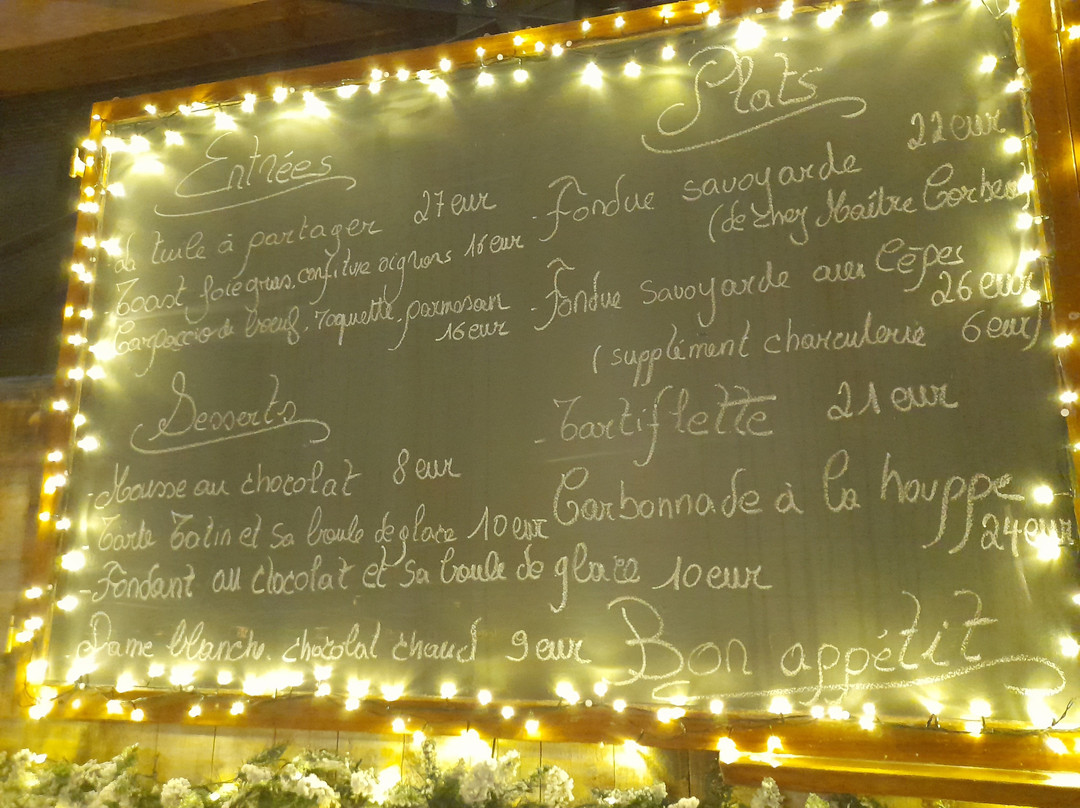 Entrées
la tuile à partager 27 eur
- Toast foie gras, confiture oignons 16 eur
- Carpaccio de boeuf, roquette, parmesan
16 eur
Desserts
- Mousse au chocolat 8 eur
- Tarte Tatin et sa boule de glace 10 eur
- Fondant au chocolat et sa boule de glace 10 eur
- Dame blanche, chocolat chaud 9 eur
Plats
22 eur
- Fondue savoyarde
(de chez Maître Corbeau)
- Fondue savoyarde aux Cèpes
26 eur
(supplément charcuterie 6 eur)
- Tartiflette 21 eur
Carbonnade à la houppe
24 eur
Bon appétit